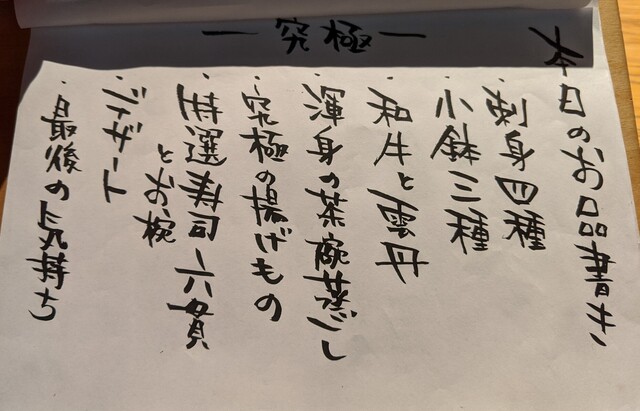 ― 究極 ―
今日のお品書き
・刺身四種
・小鉢三種
・和牛と雲丹
・渾身の茶碗蒸し
・究極の揚げもの
・特選寿司ー六貫
とお椀
・デザート
・最後のお気持ち